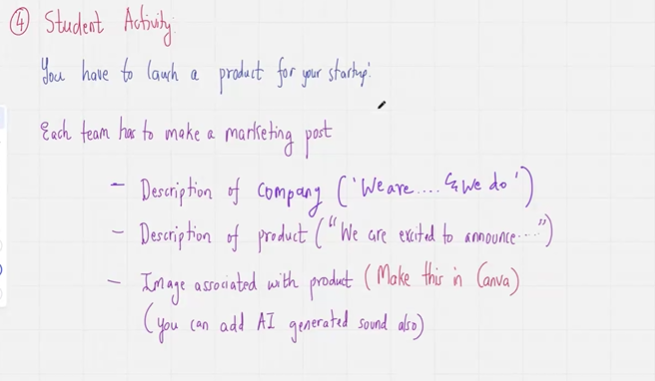 ④ Student Activity:
You have to lauch a product for your startup.
Each team has to make a marketing post
- Description of company ('We are.... & we do')
- Description of product ("We are excited to announce....")
- Image associated with product (Make this in Canva)
(you can add AI generated sound also)